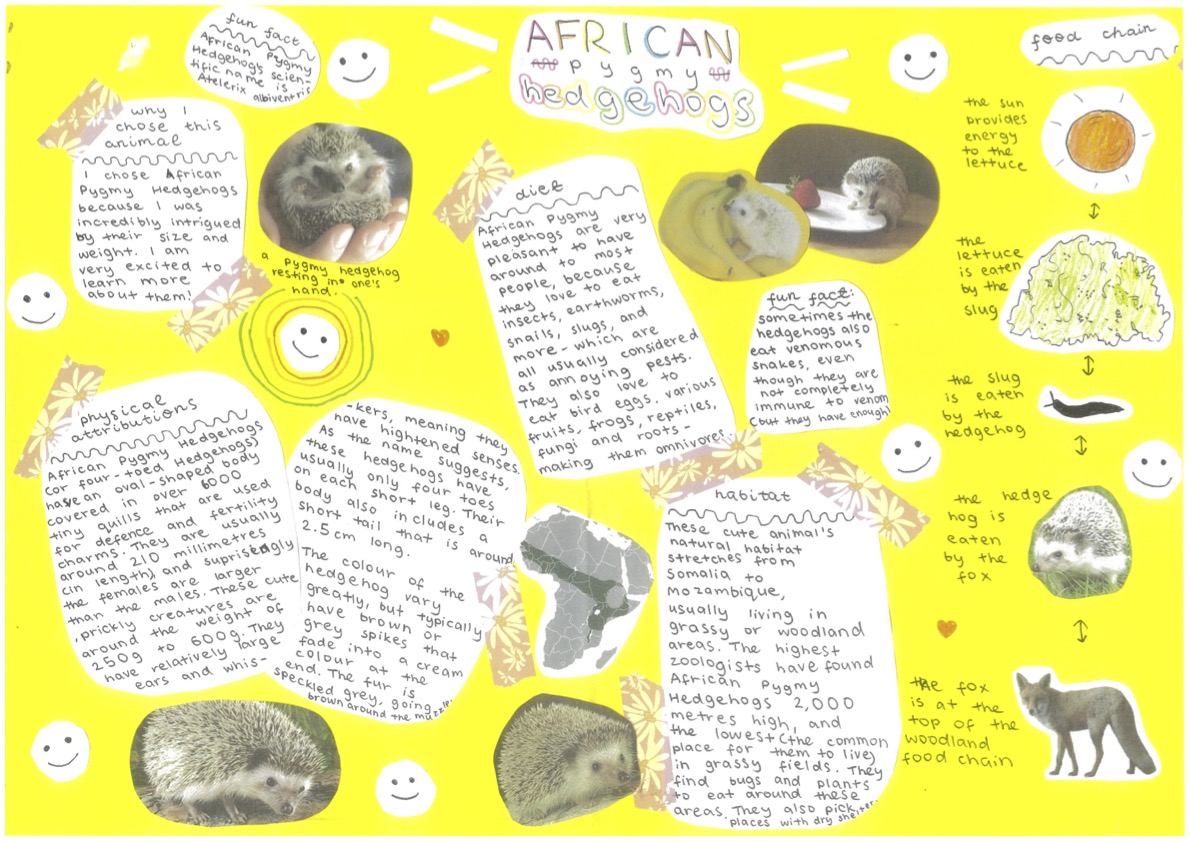 AFRICAN
pygmy
hedgehogs
fun fact
African Pygmy
Hedgehogs scien-
tific name is
Atelerix albiventris
why I
chose this
animal
I chose African
Pygmy Hedgehogs
because I was
incredibly intrigued
by their size and
weight. I am
very excited to
learn more
about them!
a pygmy hedgehog
resting in one's
hand.
physical
attributions
African Pygmy Hedgehogs
(or four-toed Hedgehogs)
have an oval-shaped body
covered in over 6000
tiny quills that are used
for defence and fertility
charms. They are usually
around 210 millimetres
(in length) and suprisingly
the females are larger
than the males. These cute
, prickly creatures are
around the weight of
250g to 600g. They
have relatively large
ears and whis-
-kers, meaning they
have hightened senses.
As the name suggests,
these hedgehogs have
usually only four toes
on each short leg. Their
body also includes a
short tail that is around
2.5cm long.
The colour of the
hedgehog vary
greatly, but typically
have brown or
grey spikes that
fade into a cream
colour at the
end. The fur is
speckled grey, going
brown around the muzzle.
diet
African Pygmy
Hedgehogs are very
pleasant to have
around to most
people, because
they love to eat
insects, earthworms,
snails, slugs, and
more - which are
all usually considered
as annoying pests.
They also love to
eat bird eggs, various
fruits, frogs, reptiles,
fungi and roots -
making them omnivores.
fun fact:
sometimes the
hedgehogs also
eat venomous
snakes, even
though they are
not completely
immune to venom
(but they have enough)
habitat
These cute animal's
natural habitat
stretches from
Somalia to
Mozambique,
usually living in
grassy or woodland
areas. The highest
zoologists have found
African Pygmy
Hedgehogs 2,000
metres high, and
the lowest (the common
place for them to live)
in grassy fields. They
find bugs and plants
to eat around these
areas. They also pick
places with dry shelter.
food chain
the sun
provides
energy
to the
lettuce
the
lettuce
is eaten
by the
slug
the slug
is eaten
by the
hedgehog
the hedge
hog is
eaten
by the
fox
the fox
is at the
top of the
woodland
food chain